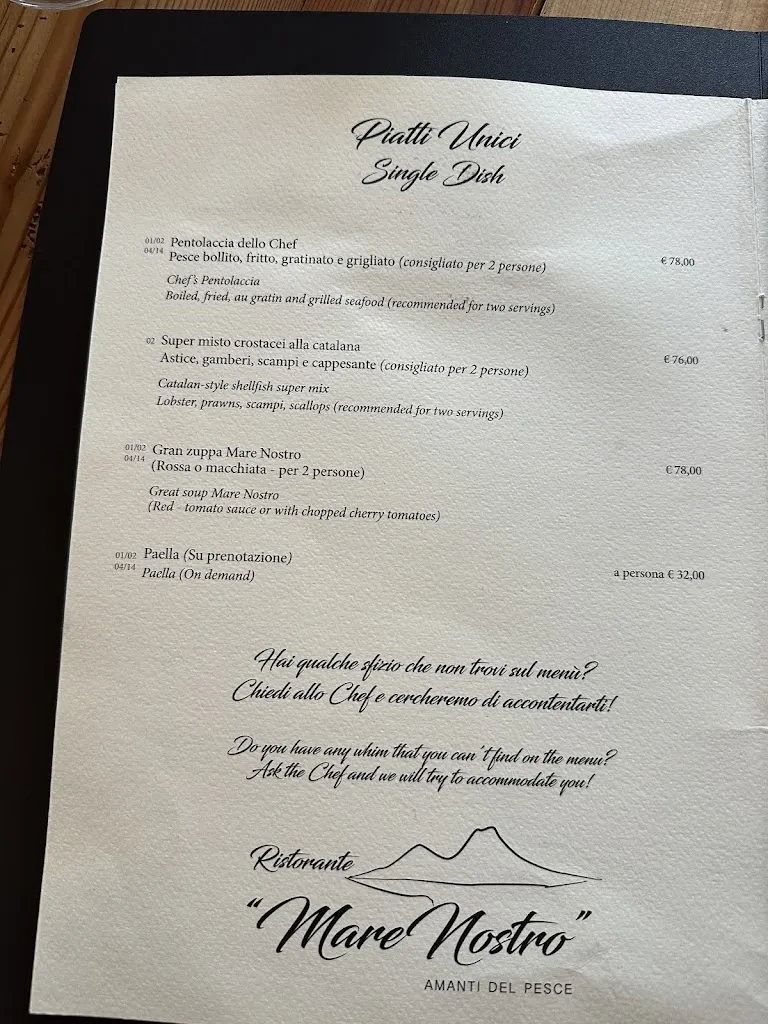 Piatti Unici
Single Dish
01/02 Pentolaccia dello Chef
04/14 Pesce bollito, fritto, gratinato e grigliato (consigliato per 2 persone) € 78,00
Chef's Pentolaccia
Boiled, fried, au gratin and grilled seafood (recommended for two servings)
02 Super misto crostacei alla catalana
Astice, gamberi, scampi e cappesante (consigliato per 2 persone) € 76,00
Catalan-style shellfish super mix
Lobster, prawns, scampi, scallops (recommended for two servings)
01/02 Gran zuppa Mare Nostro
04/14 (Rossa o macchiata - per 2 persone) € 78,00
Great soup Mare Nostro
(Red - tomato sauce or with chopped cherry tomatoes)
01/02 Paella (Su prenotazione)
04/14 Paella (On demand) a persona € 32,00
Hai qualche sfizio che non trovi sul menù?
Chiedi allo Chef e cercheremo di accontentarti!
Do you have any whim that you can't find on the menu?
Ask the Chef and we will try to accommodate you!
Ristorante
"Mare Nostro"
AMANTI DEL PESCE